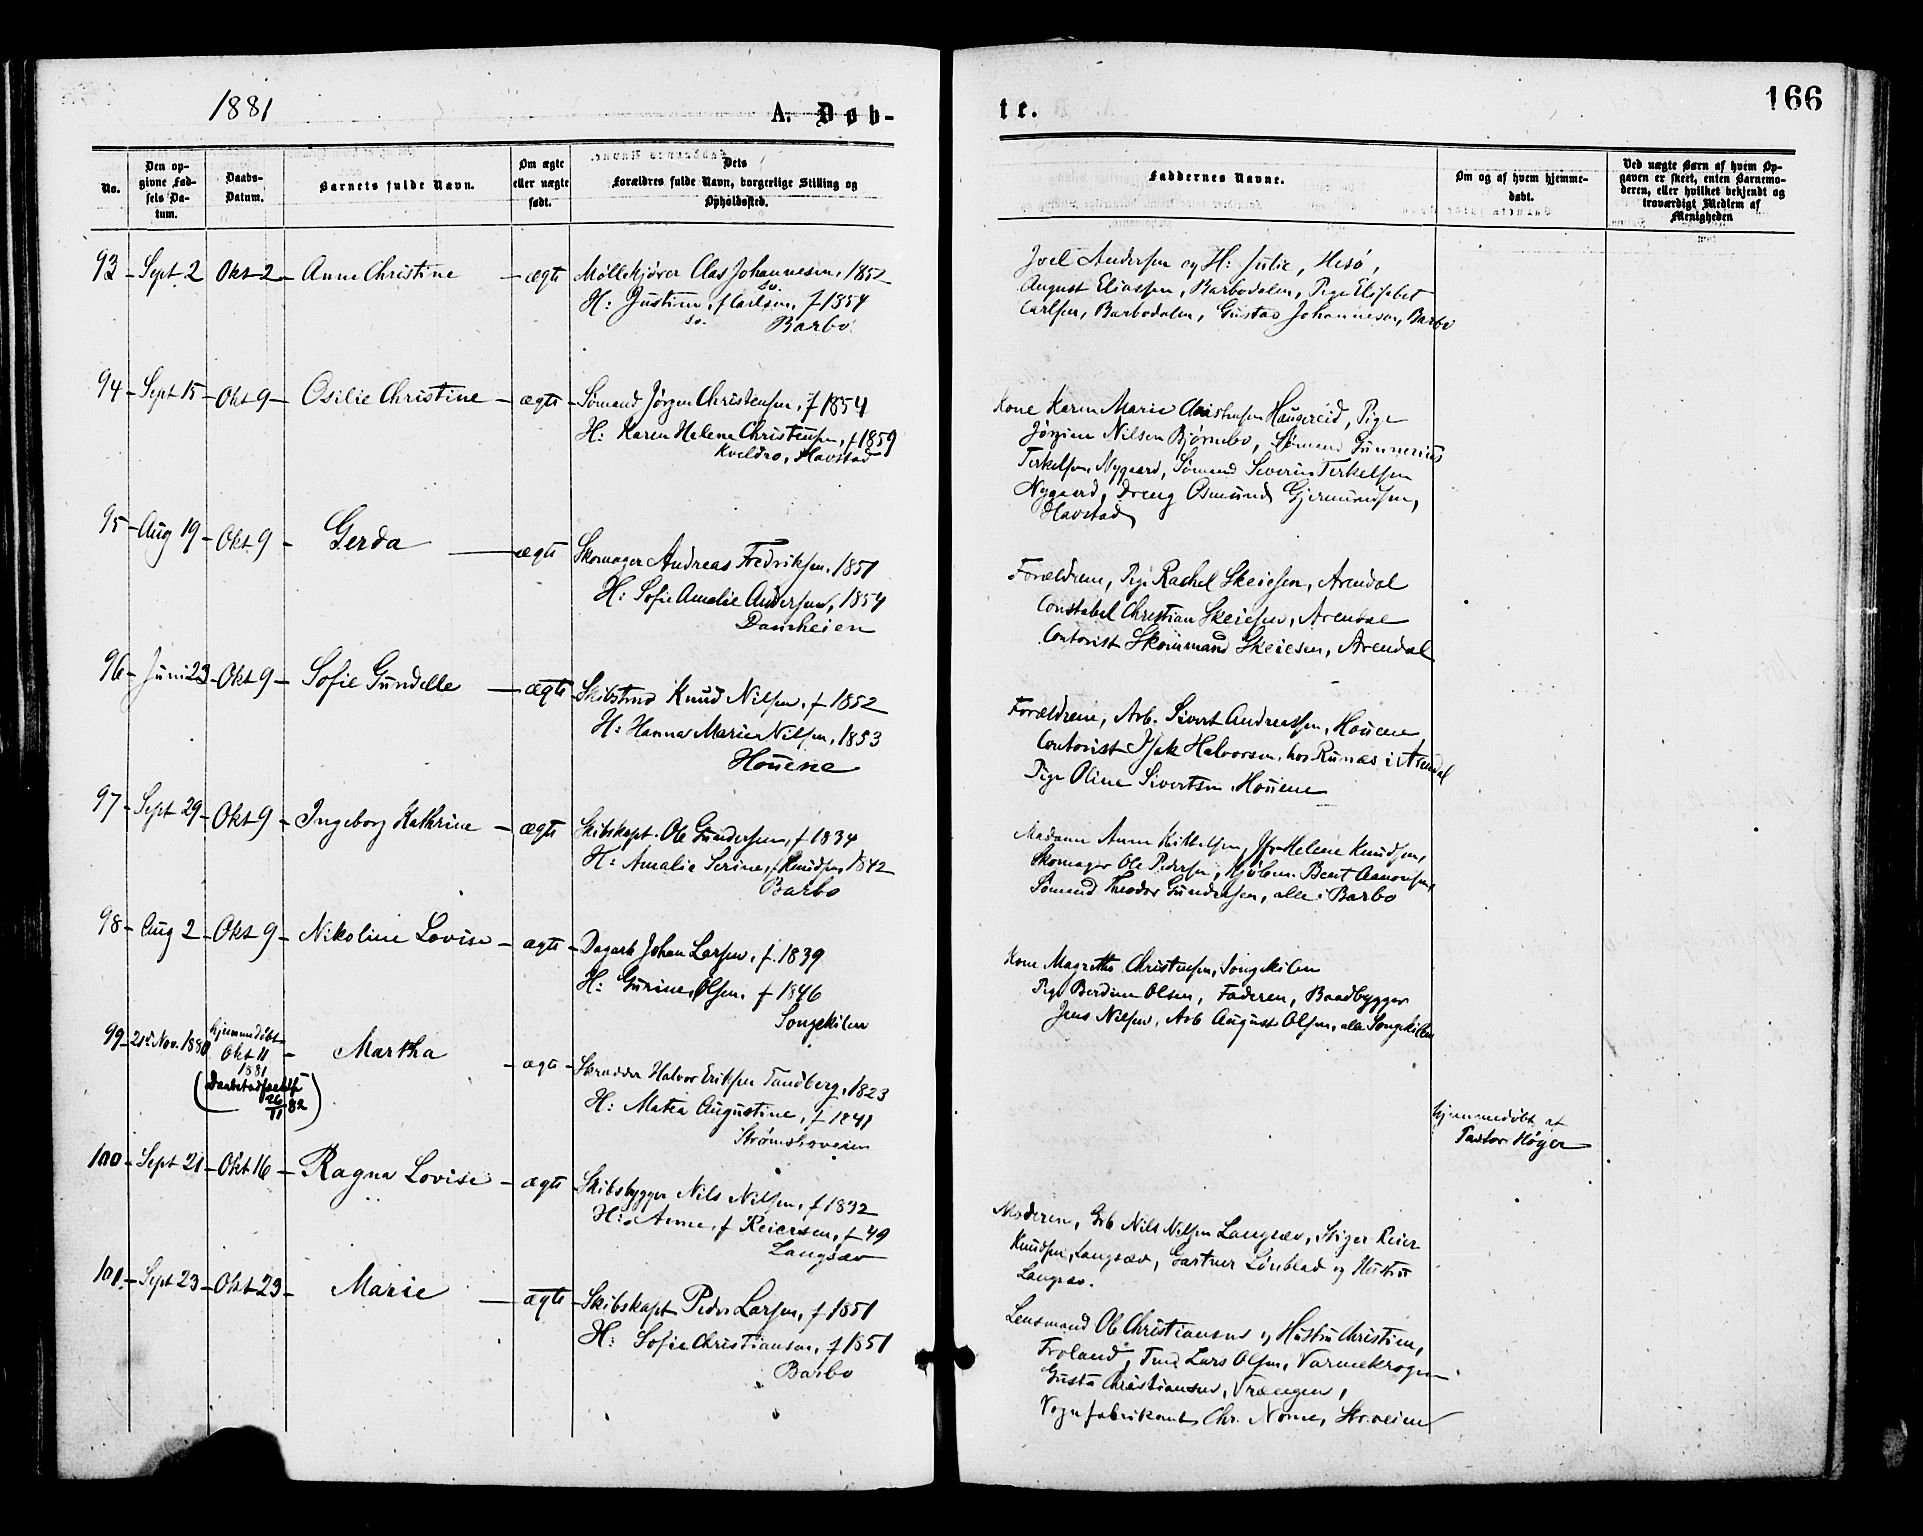 1881
A. Døb-
No.
Den op-
givne Fød-
sels Da-
tum.
Daabs-
Datum.
Barnets fulde Navn.
Om ægte
eller uægte
født.
Dets
Forældres fulde Navn, borgerlige Stilling og
Opholdssted.
93 Sept 2 Okt 2 Anne Christine ægte Møllekjører Clas Johannesen, 1852
H: Justine, f Carlsen, f 1854
Barbo
94 Sept 15 Okt 9 Osilie Christine ægte Sømand Jörgen Christensen, f 1854
H: Karen Helene Christensen, f 1859
Kveldro, Havstad
95 Aug 19 Okt 9 Gerda ægte Skomager Andreas Fredriksen, 1851
H: Sofie Amalie Andersen, 1854
96 Juni 23 Okt 9 Sofie Gundelle ægte Skibstmd Knud Nilsen, f 1852
H: Hanna Marie Nilsen, 1853
Houene
97 Sept 29 Okt 9 Ingeborg Kathrine ægte Skibskapt. Ole Gundersen, f 1834
H: Amalie Serine, f Knudsen, 1842
Barbo
98 Aug 2 Okt 9 Nikoline Lovise ægte Dagarb Johan Larsen, f. 1839
H: Gurine, Olsen, f 1846
Songekilen
99 21de Nov. 1880 hjemmedöbt
Okt 11
1881
26/11 82
Martha ægte Skrædder Halvor Eriksen Tandberg, 1823
H: Matea Augustine, f 1841
100 Sept 21 Okt 16 Ragna Lovise ægte Skibsbygger Nils Nilsen, f 1832
H: Anne, f Reiersen, f 49
Langsæv
101 Sept 23 Okt 23 Marie ægte Skibskapt Peder Larsen, f 1851
H: Sofie Christiansen, f 1851
Barbo
te.
166
Faddernes Navne.
Om og af hvem hjemme-
døbt.
Ved uægte Børn af hvem Op-
gaven er skeet, enten Barnemo-
deren, eller hvilket bekjendt og
troværdigt Medlem af
Menigheden
Joel Andersen og H: Julie, Hesö,
August Eliassen, Barbodalen, Pige Elisabet
Carlsen, Barbodalen, Gustav Johannesen, Barbo
Kone Karen Marie Christensen Haugereid, Pige
Jörgine Nilsen Bjørnebo, Sømand Gunnerius
Terkelsen, Nygaard, Sømand Severin Terkelsen
Nygaard, Dreng Osmund Gjermundsen,
Havstad
Forældrene, Pige Rachel Skeiesen, Arendal
Constabel Christian Skeiesen, Arendal
Contorist Skommand Skeiesen, Arendal
Forældrene, Arb. Sivert Andreassen, Houene
Contorist Isak Halvorsen, hos Runæs i Arendal
Pige Oline Sivertsen, Houene
Madame Anne Kittelsen, Jfr Helene Knudsen,
Skomager Ole Pedersen, Bent Aanonsen,
Sømand Theodor Gundersen, alle i Barbo
Kone Magrethe Christensen, Songekilen
Pige Berdine Olsen, Faderen, Baadbygger
Jens Nilsen, Arb August Olsen, alle Songekilen
hjemmedöbt af
Pastor Høyer
Moderen, Nils Nilsen Langsæv, Reier
Knudsen, Langsæv, Gartner Lönblad og Hustru
Langsæv.
Lensmand Ole Christiansen og Hustru Christine,
Froland, Tmd Lars Olsen, Varmekrogen
Gusta Christiansen, Vrængen,
Vognfabrikant Chr. Nome, Str.veien